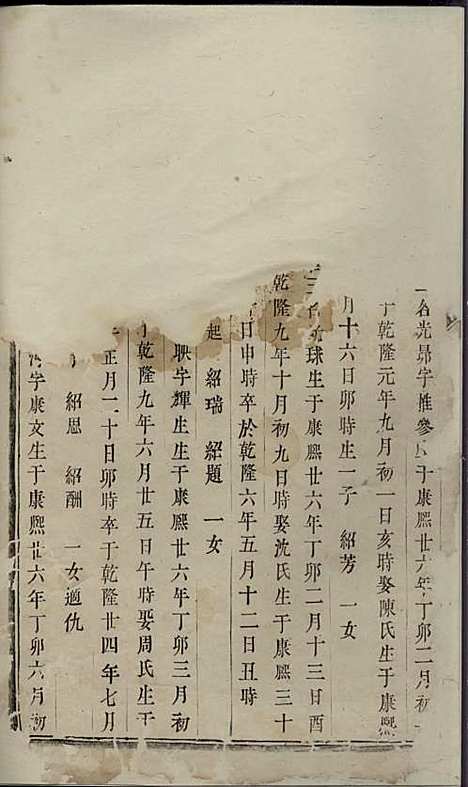 名光昴字惟參生于康熙廿六年丁卯二月初
于乾隆元年九月初一日亥時娶陳氏生于康熙
月十六日卯時生一子 紹芳 一女
球生于康熙廿六年丁卯二月十三日酉
乾隆九年十月初九日時娶沈氏生于康熙三十
日申時卒於乾隆六年五月十二日丑時
起 紹瑞 紹題 一女
映字輝生生于康熙廿六年丁卯三月初
乾隆九年六月廿五日午時娶周氏生于
正月二十日卯時卒于乾隆廿四年七月
紹思 紹酬 一女適仇
字康文生于康熙廿六年丁卯六月初